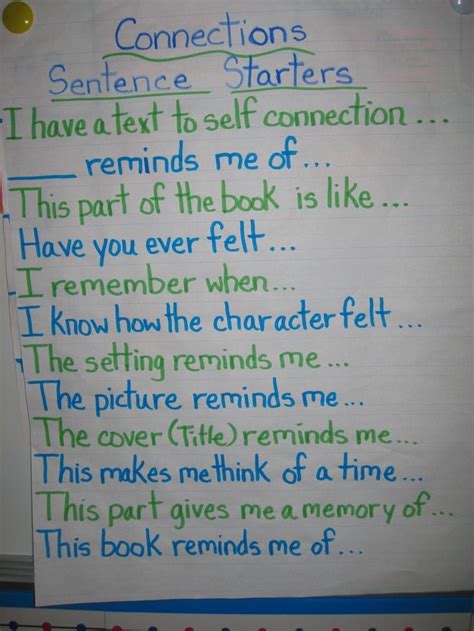 Connections
Sentence Starters
I have a text to self connection ...
____ reminds me of...
This part of the book is like...
Have you ever felt...
I remember when...
I know how the character felt...
The setting reminds me...
The picture reminds me...
The cover (Title) reminds me...
This makes me think of a time...
This part gives me a memory of...
This book reminds me of...